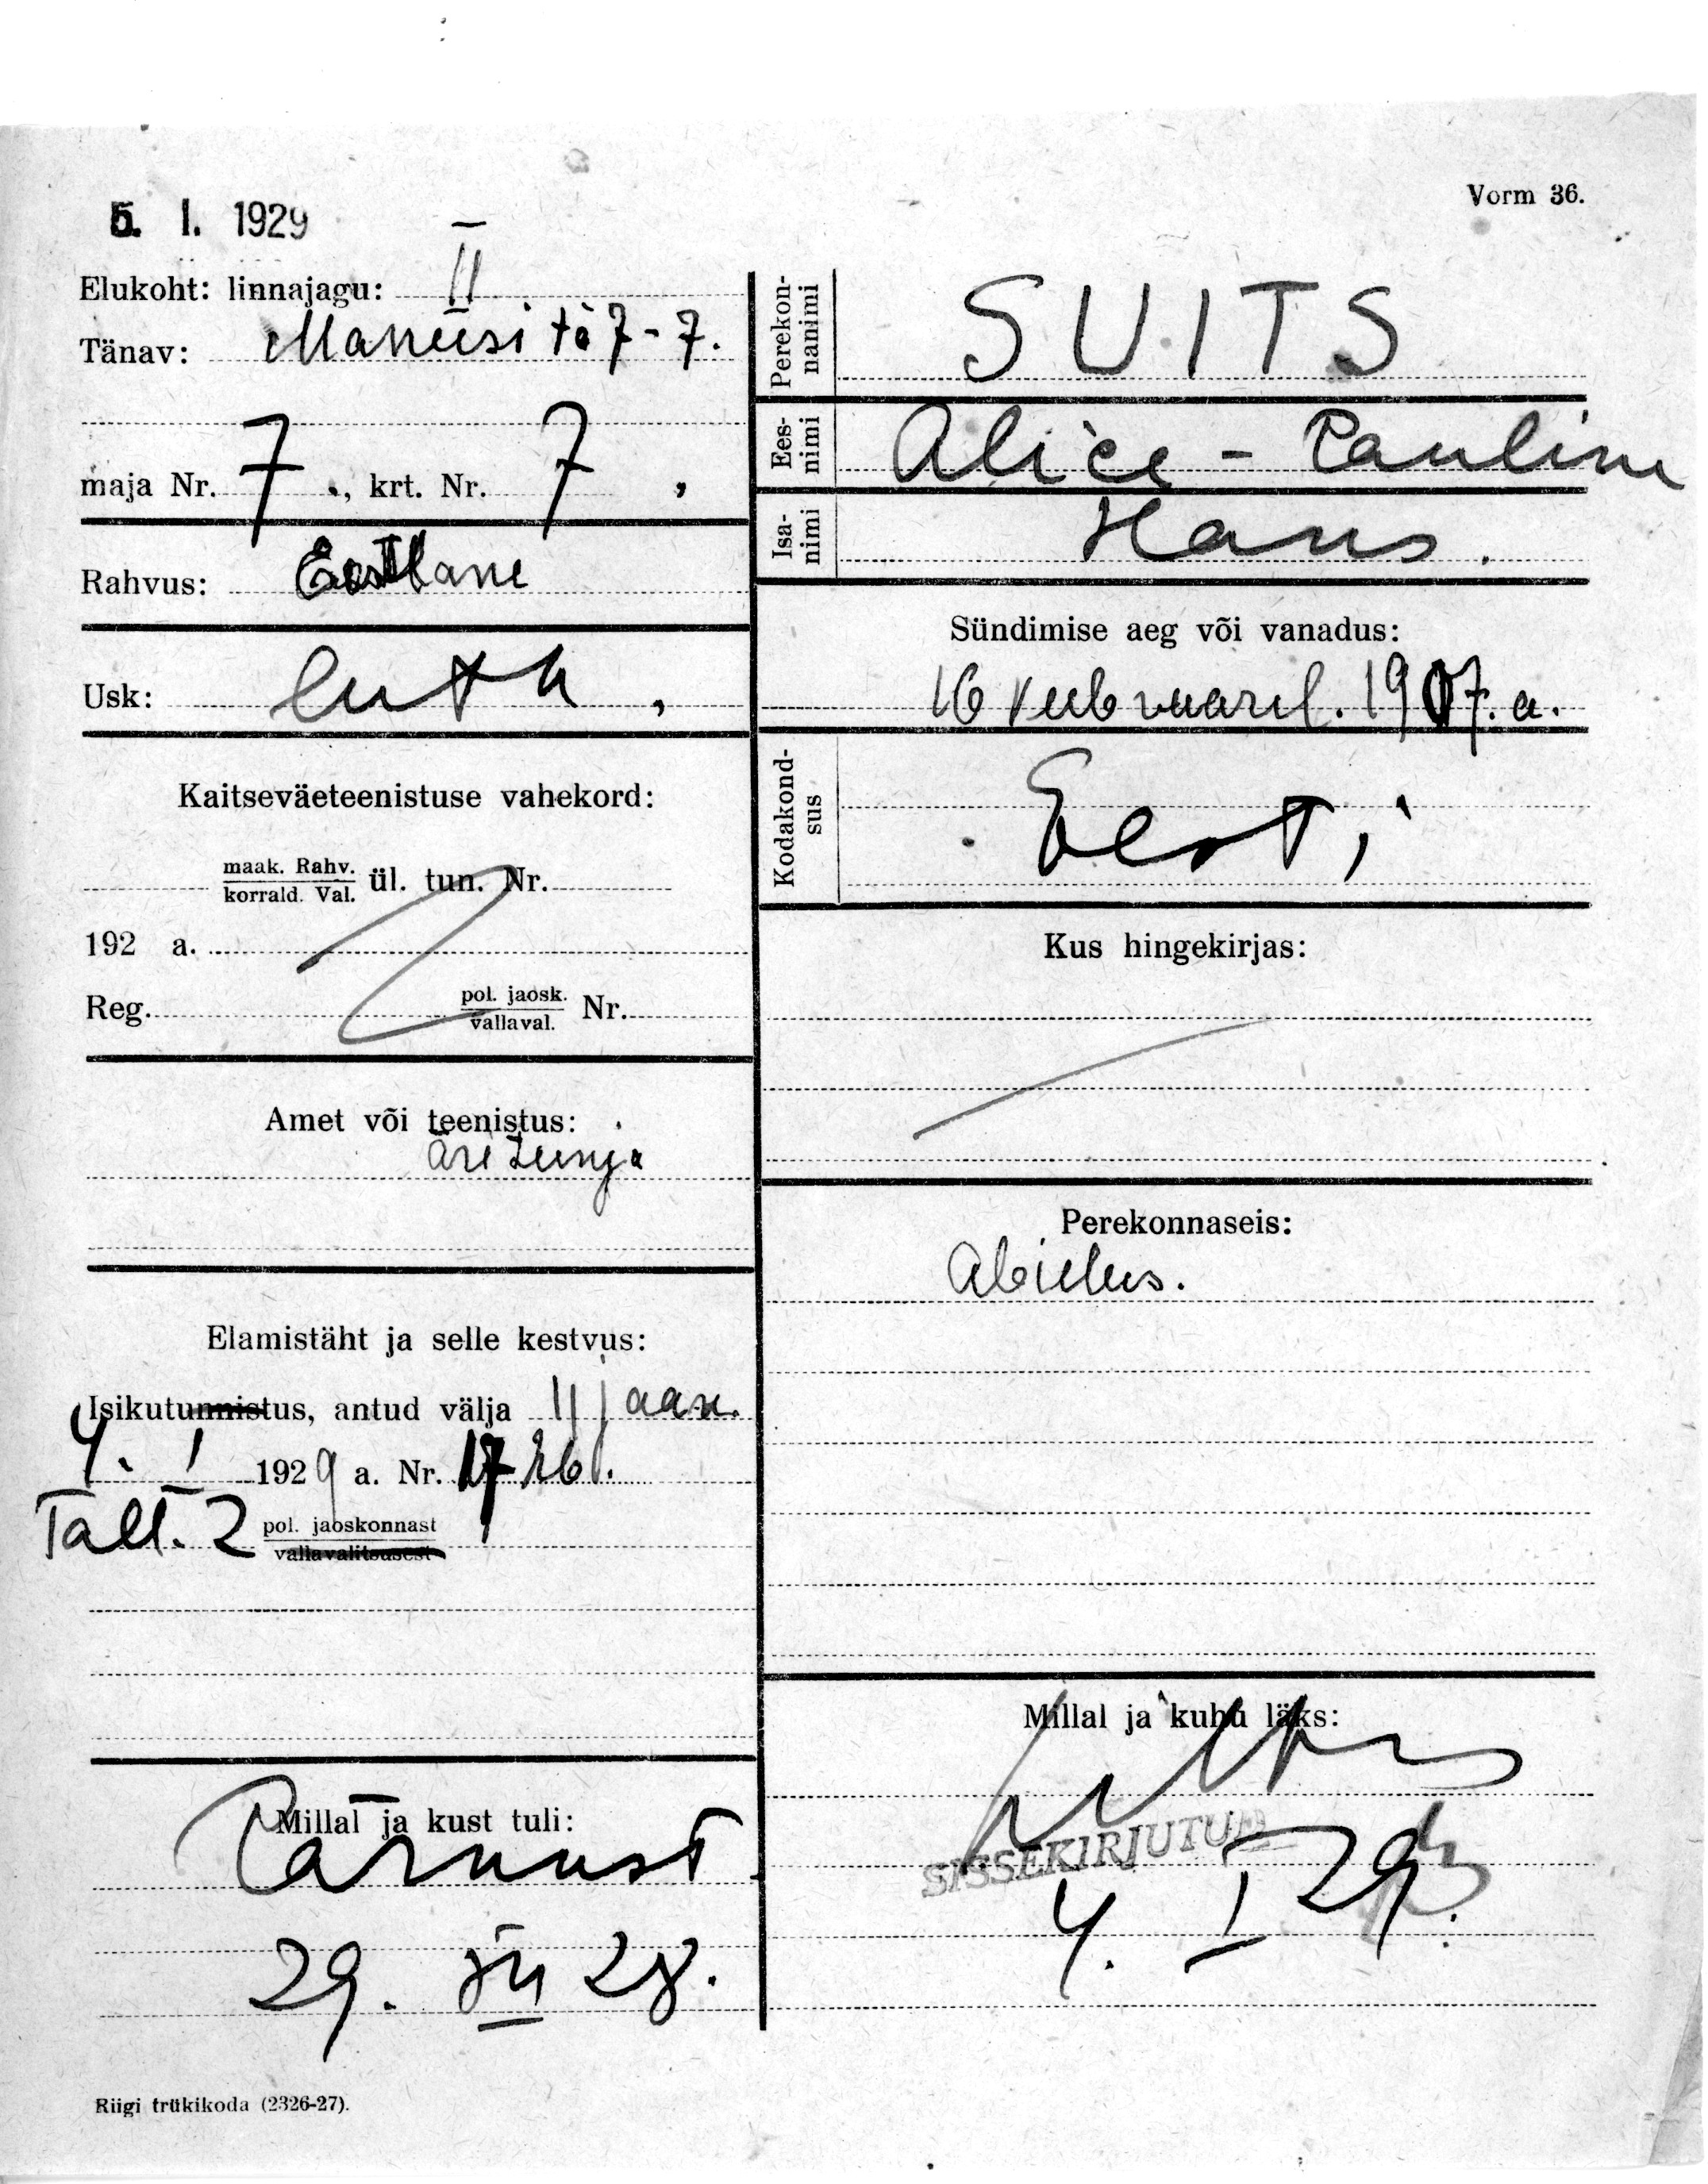 5. I. 1929
Vorm 36.
Elukoht: linnajagu: II
Tänav: Maneesi tä 7-7.
maja Nr. 7., krt. Nr. 7,
Rahvus: Eestlane
Usk: luth,
Kaitseväeteenistuse vahekord:
maak. Rahv.
korrald. Val. ül. tun. Nr.
192 a.
Reg. pol. jaosk.
vallaval. Nr.
Amet või teenistus:
Äriteenija
Elamistäht ja selle kestvus:
Isikutunnistus, antud välja 11 jaan.
4. I 1929 a. Nr. 1726.
Tall. 2 pol. jaoskonnast
vallavalitsusest
Millal ja kust tuli:
Pärnust
29. XII 28.
Riigi trükikoda (2326-27).
Perekon-
nanimi SUITS
Ees-
nimi Alice - Pauline
Isa-
nimi Hans.
Sündimise aeg või vanadus:
16 veebruaril. 1907. a.
Kodakond-
sus Eesti
Kus hingekirjas:
Perekonnaseis:
Abielus.
Millal ja kuhu läks:
SISSEKIRJUTUD
4. I 29.